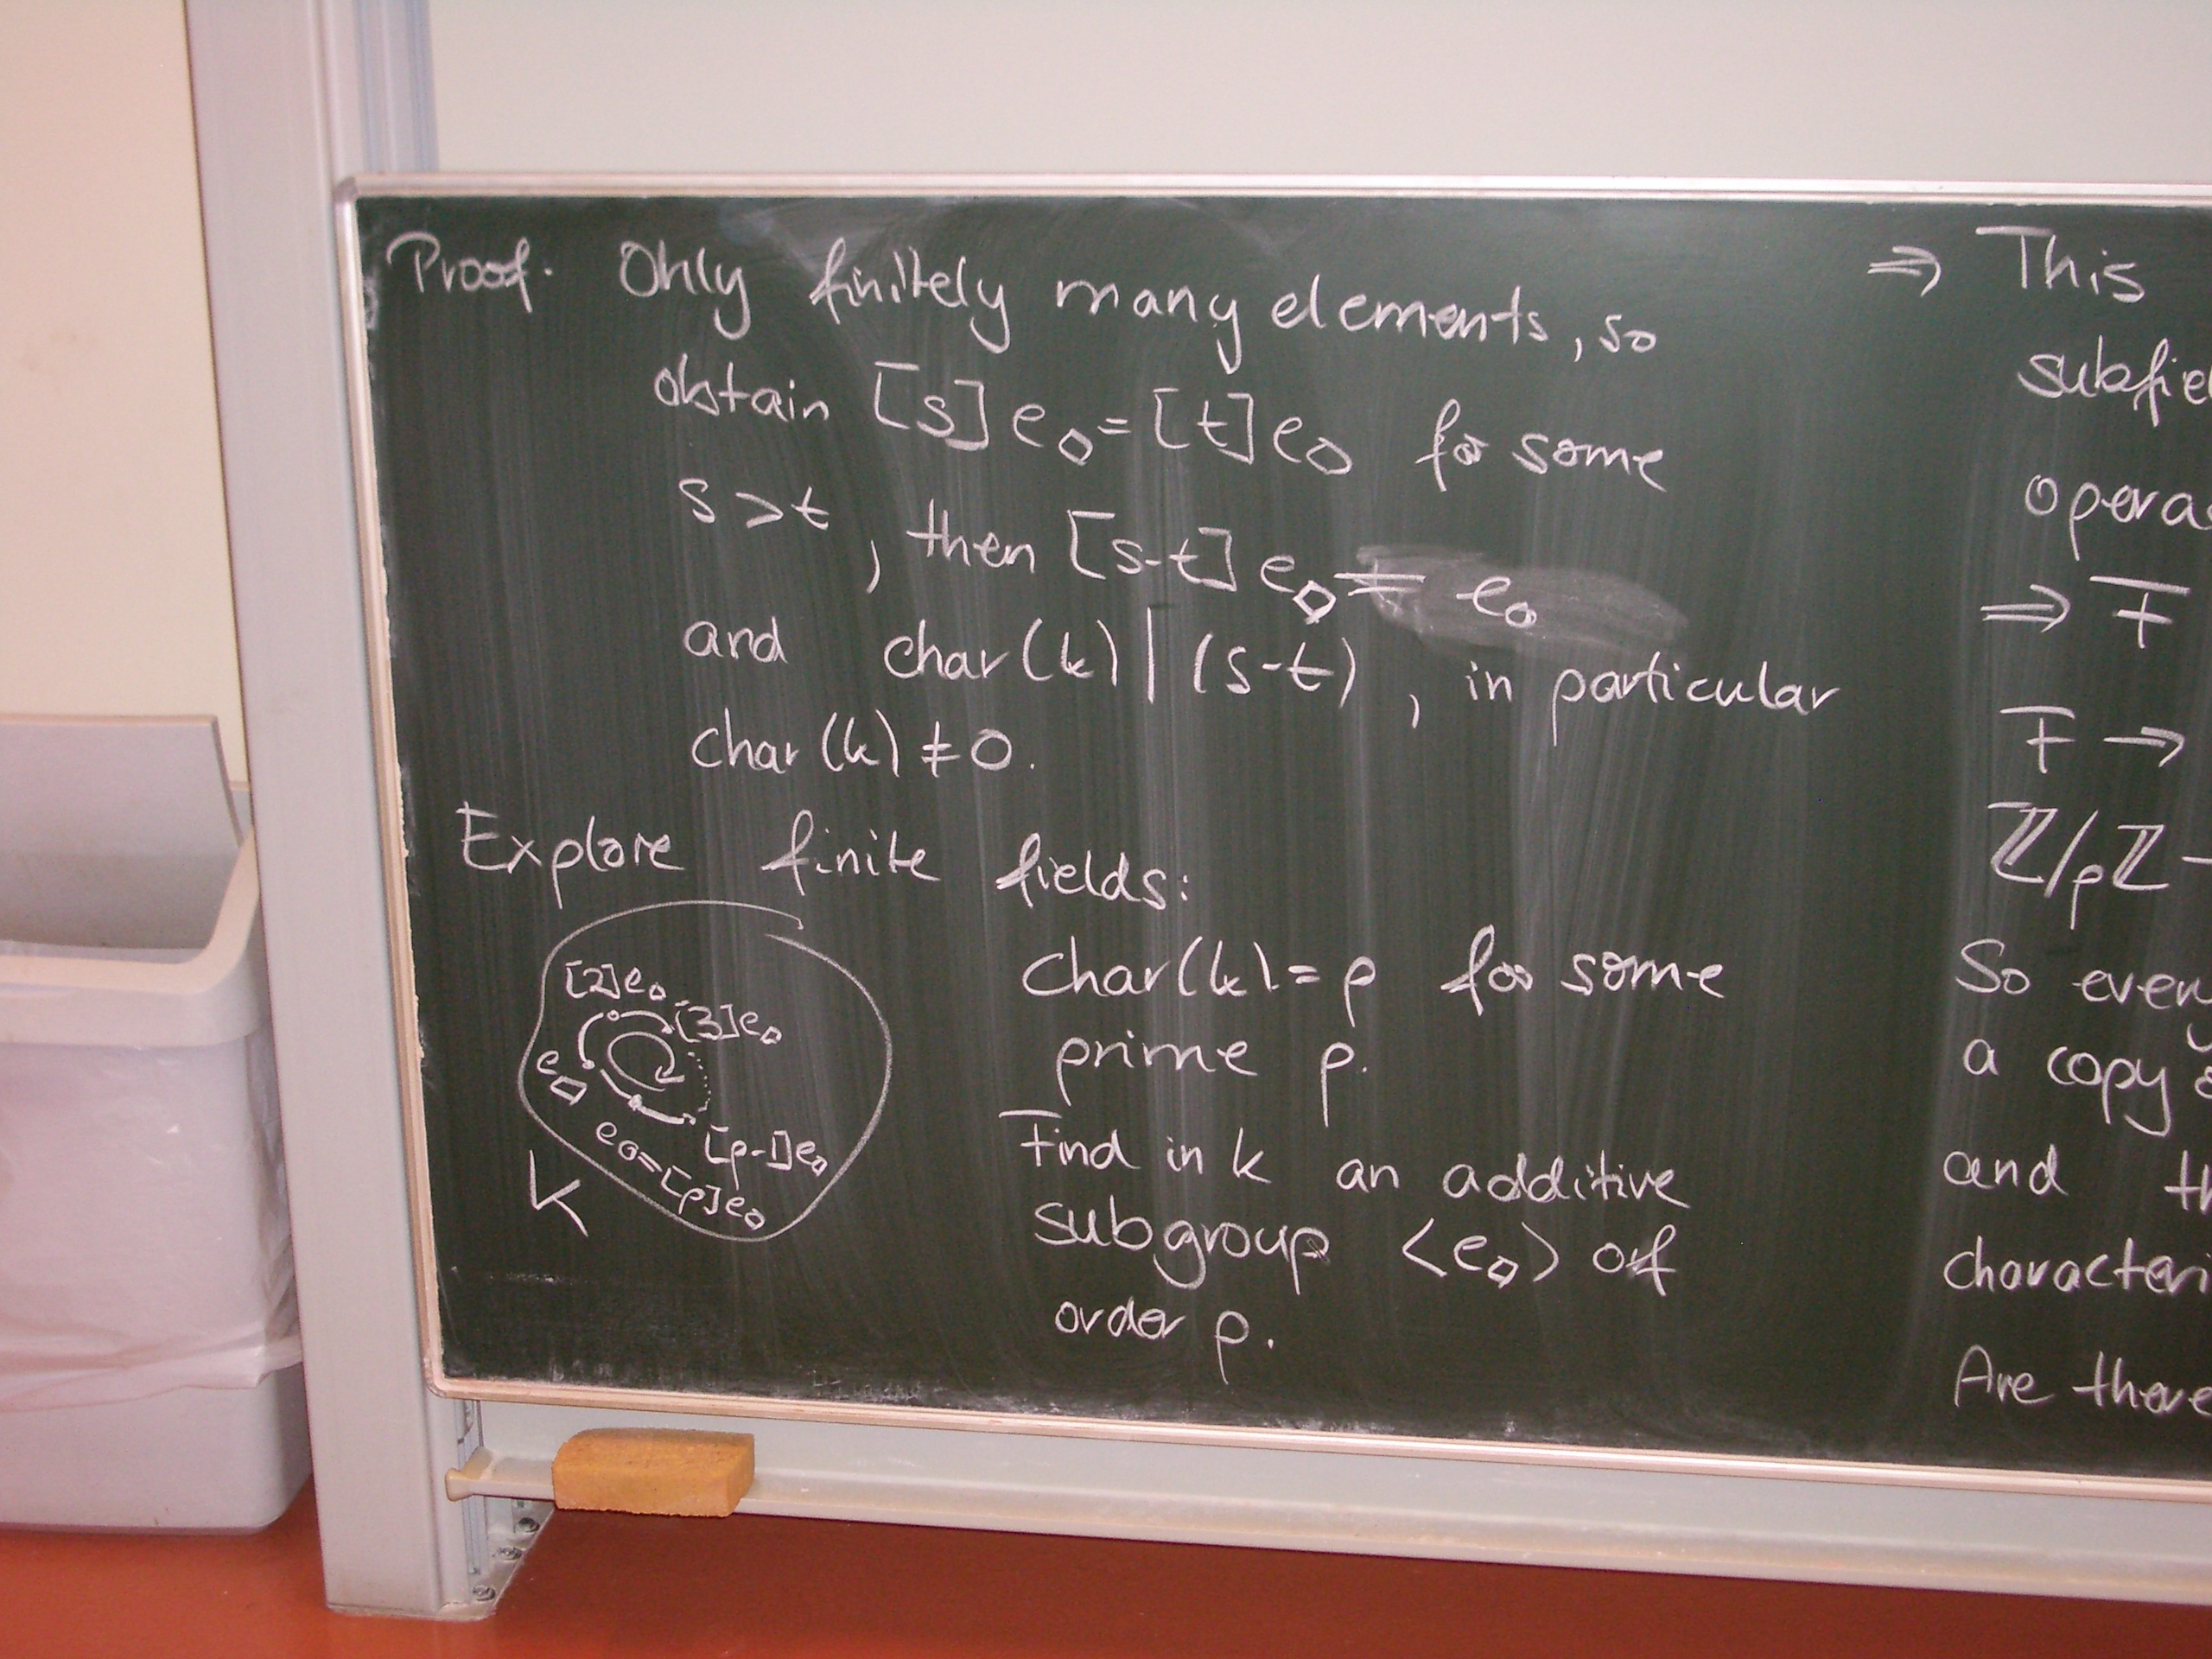 Proof. Only finitely many elements, so
obtain [s]e◇ = [t]e◇ for some
s > t, then [s-t]e◇ = e₀
and char(k) | (s-t), in particular
char(k) ≠ 0.
Explore finite fields:
[2]e◇
[3]e◇
e◇
[p-1]e◇
e₀=[p]e◇
k
char(k) = p for some
prime p.
Find in k an additive
subgroup <e◇> of
order p.
⇒ This
subfie
opera
⇒ F
F →
ℤ/pℤ
So every
a copy
and th
characteri
Are there